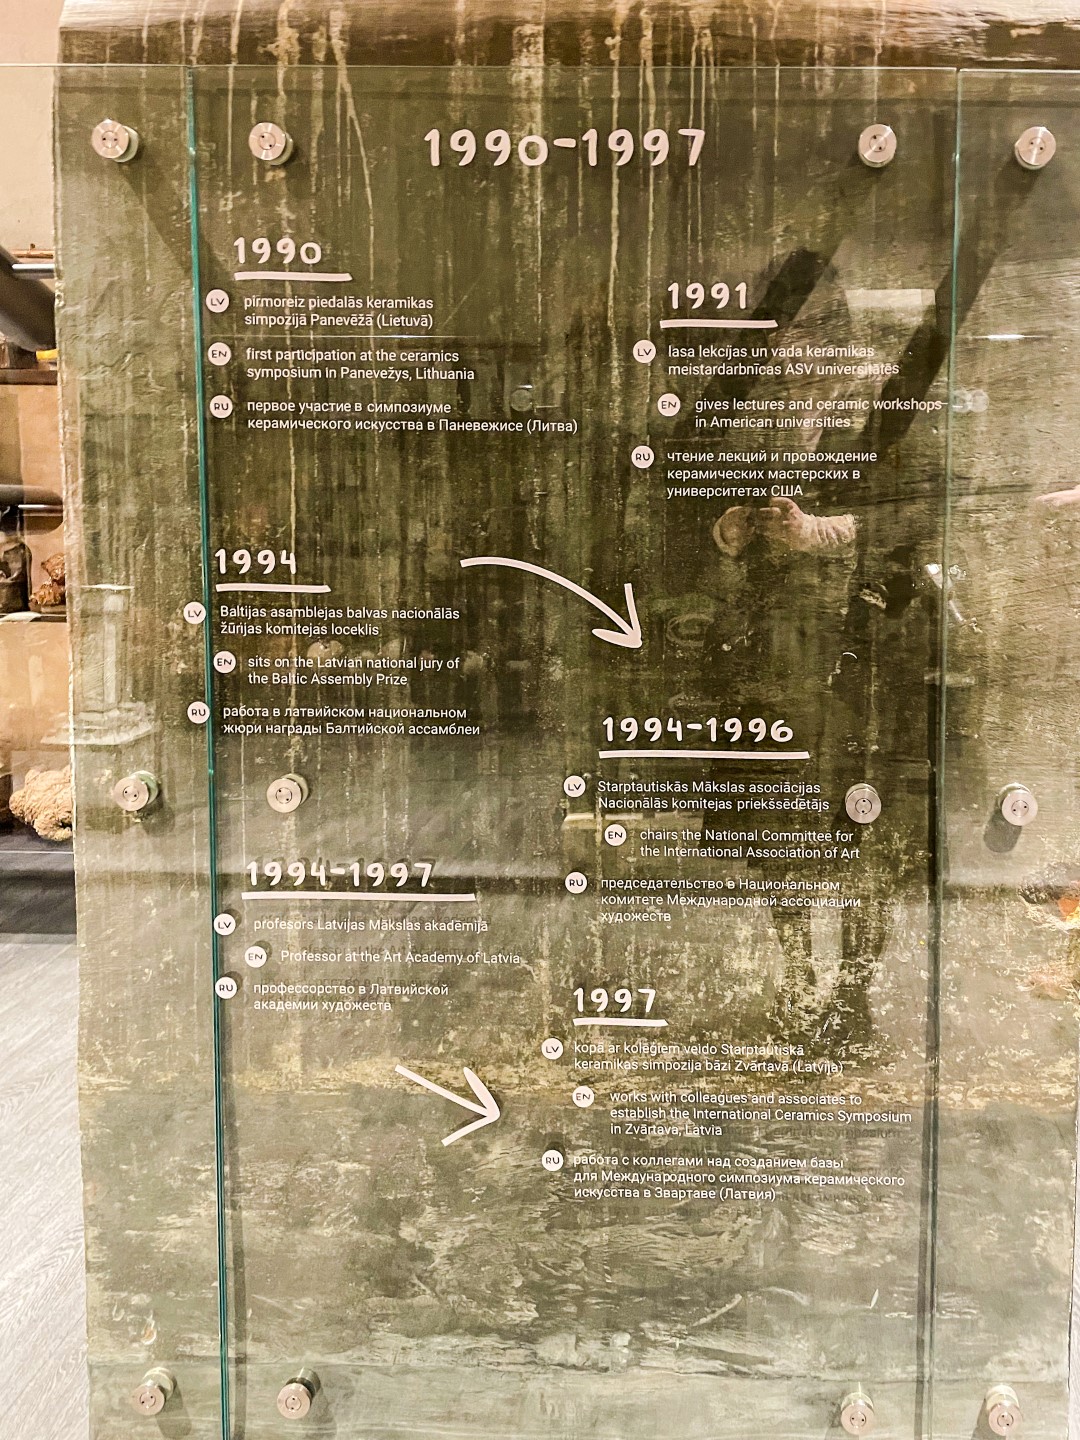 1990-1997
1990
LV pirmoreiz piedalās keramikas
simpozijā Panevēžā (Lietuvā)
EN first participation at the ceramics
symposium in Panevežys, Lithuania
RU первое участие в симпозиуме
керамического искусства в Паневежисе (Литва)
1991
LV lasa lekcijas un vada keramikas
meistardarbnīcas ASV universitātēs
EN gives lectures and ceramic workshops
in American universities
RU чтение лекций и провождение
керамических мастерских в
университетах США
1994
LV Baltijas asamblejas balvas nacionālās
žūrijas komitejas loceklis
EN sits on the Latvian national jury of
the Baltic Assembly Prize
RU работа в латвийском национальном
жюри награды Балтийской ассамблеи
1994-1996
LV Starptautiskās Mākslas asociācijas
Nacionālās komitejas priekšsēdētājs
EN chairs the National Committee for
the International Association of Art
RU председательство в Национальном
комитете Международной ассоциации
художеств
1994-1997
LV profesors Latvijas Mākslas akadēmijā
EN Professor at the Art Academy of Latvia
RU профессорство в Латвийской
академии художеств
1997
LV kopā ar kolēģiem veido Starptautiskā
keramikas simpozija bāzi Zvārtavā (Latvijā)
EN works with colleagues and associates to
establish the International Ceramics Symposium
in Zvārtava, Latvia
RU работа с коллегами над созданием базы
для Международного симпозиума керамического
искусства в Звартаве (Латвия)